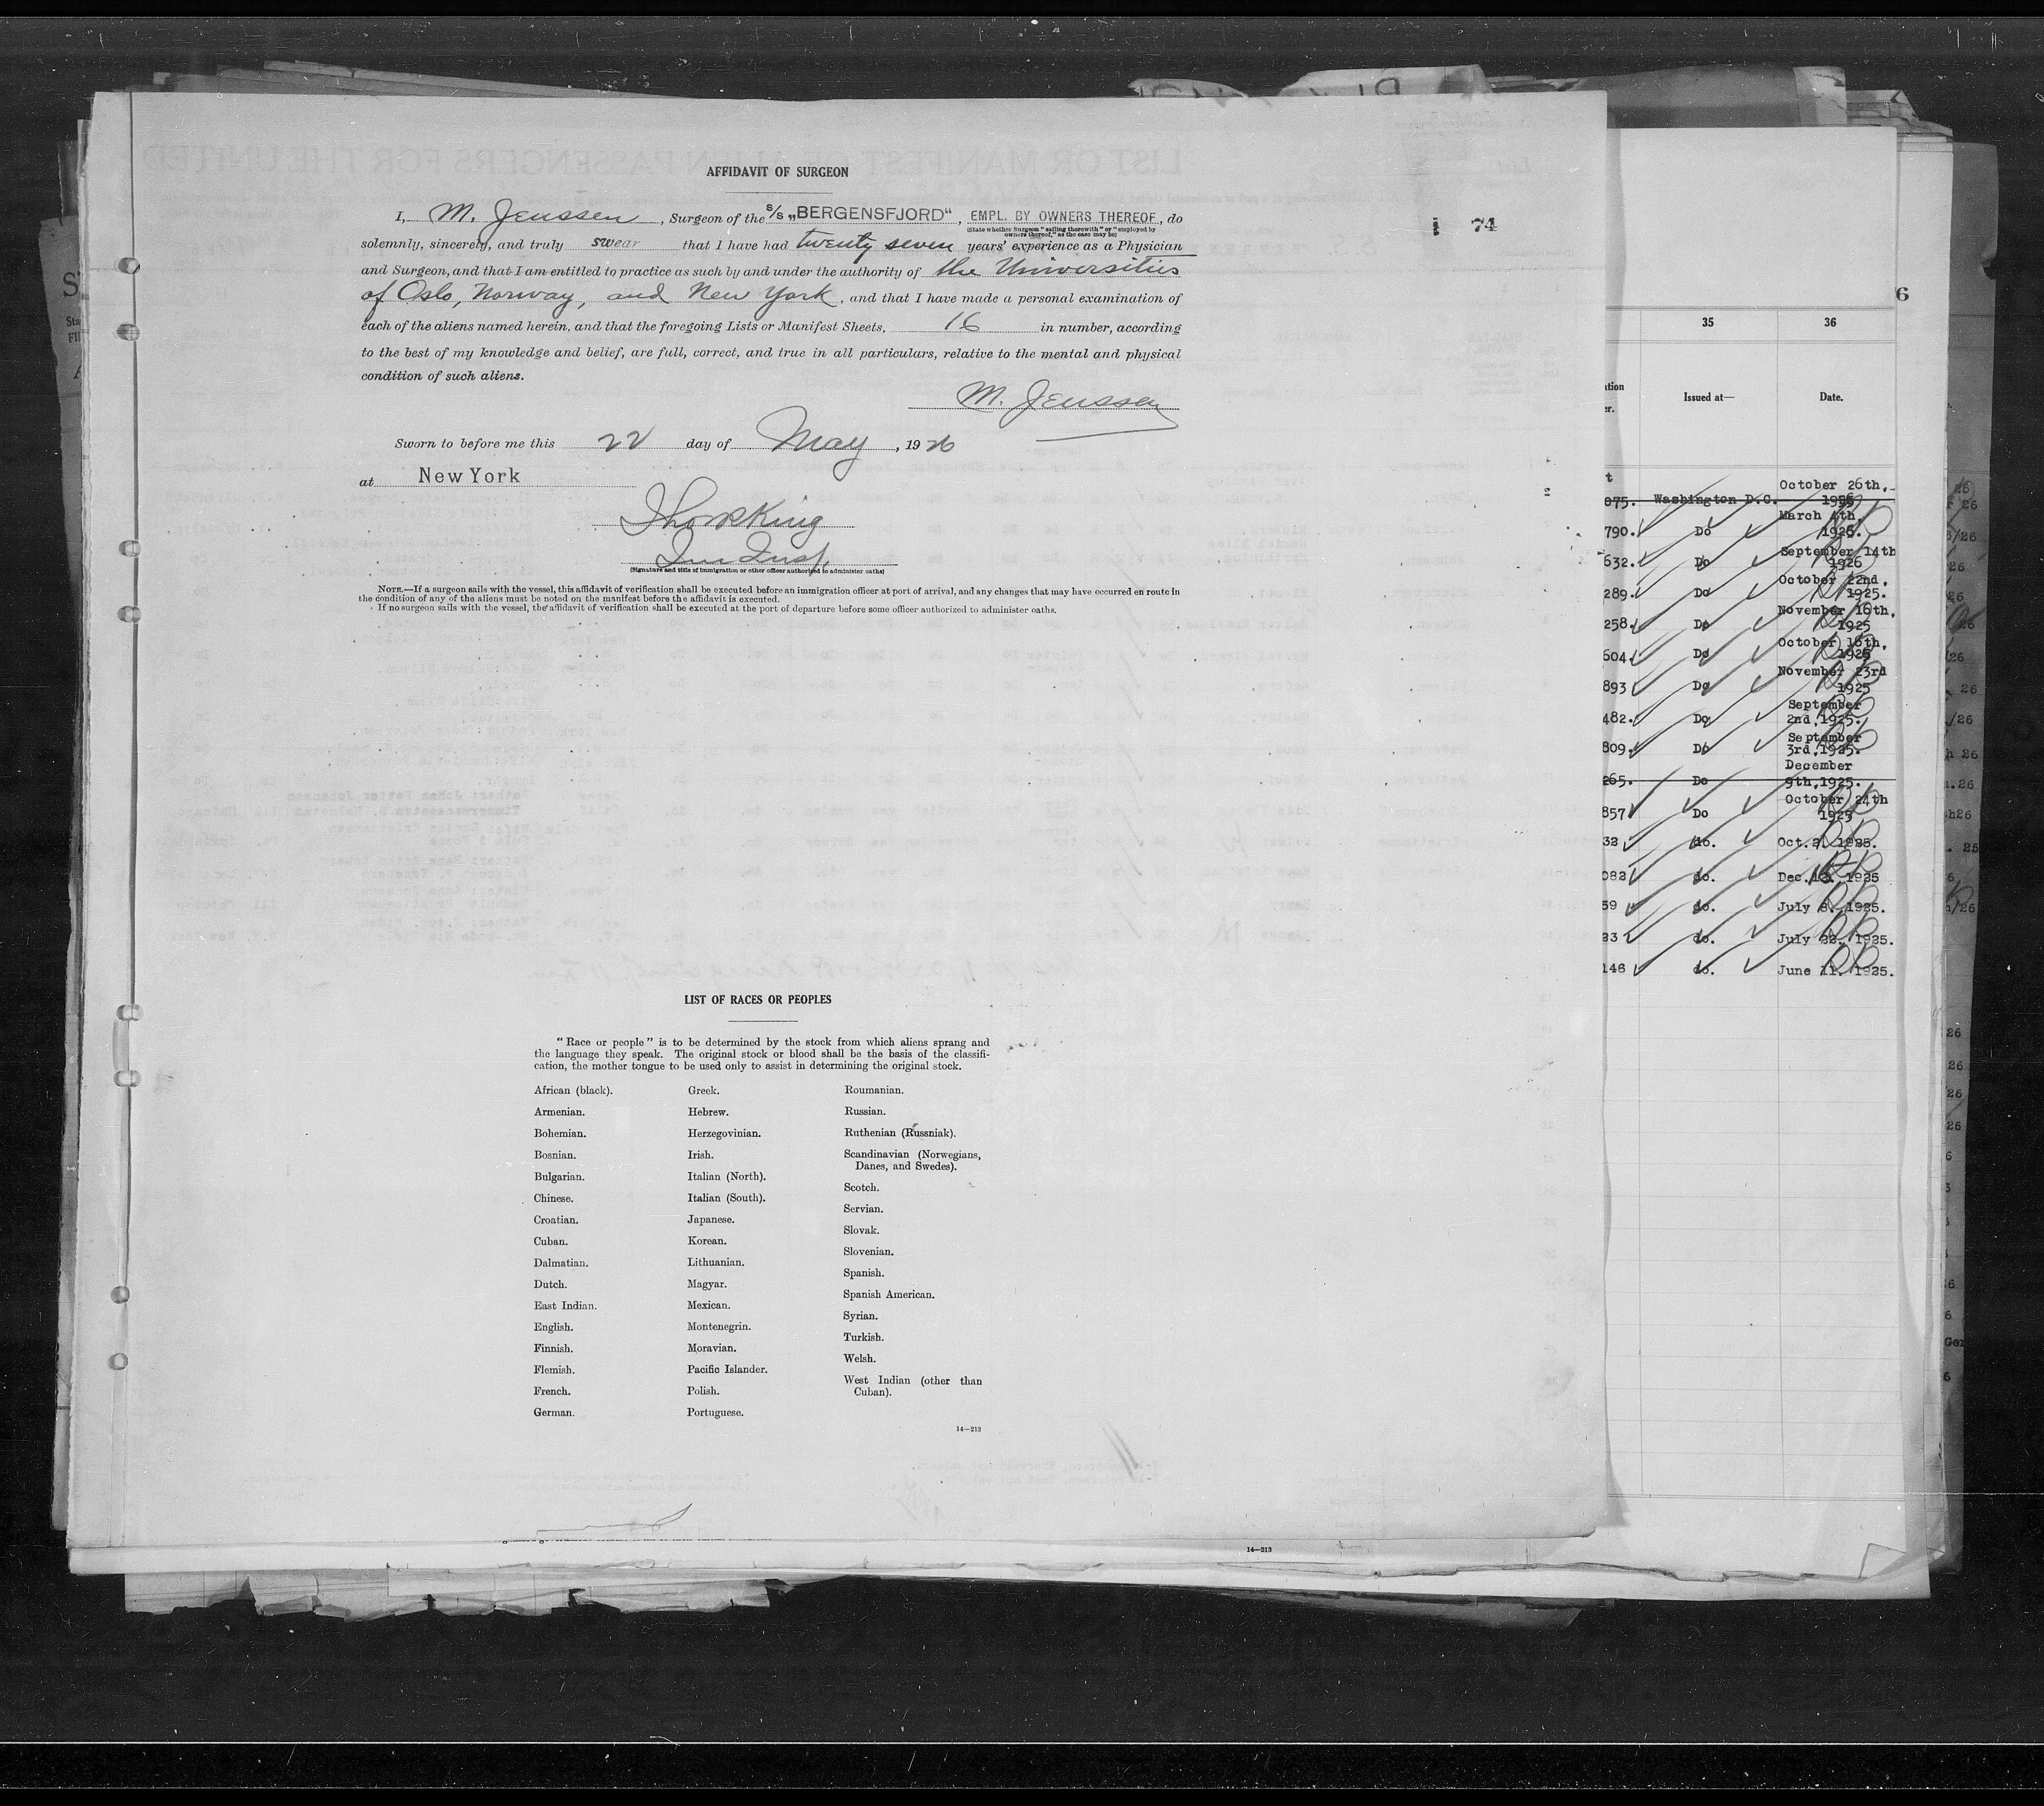 AFFIDAVIT OF SURGEON
I, M. Jenssen, Surgeon of the S/S „BERGENSFJORD“, EMPL. BY OWNERS THEREOF, do
(State whether Surgeon "sailing therewith" or "employed by
owners thereof," as the case may be)
solemnly, sincerely, and truly swear that I have had twenty seven years' experience as a Physician
and Surgeon, and that I am entitled to practice as such by and under the authority of the Universities
of Oslo, Norway, and New York, and that I have made a personal examination of
each of the aliens named herein, and that the foregoing Lists or Manifest Sheets, 16 in number, according
to the best of my knowledge and belief, are full, correct, and true in all particulars, relative to the mental and physical
condition of such aliens.
M. Jenssen
Sworn to before me this 22 day of May, 1926
at New York
(Signature and title of immigration or other officer authorized to administer oaths)
NOTE.—If a surgeon sails with the vessel, this affidavit of verification shall be executed before an immigration officer at port of arrival, and any changes that may have occurred en route in
the condition of any of the aliens must be noted on the manifest before the affidavit is executed.
If no surgeon sails with the vessel, the affidavit of verification shall be executed at the port of departure before some officer authorized to administer oaths.
LIST OF RACES OR PEOPLES
"Race or people" is to be determined by the stock from which aliens sprang and
the language they speak. The original stock or blood shall be the basis of the classifi-
cation, the mother tongue to be used only to assist in determining the original stock.
African (black).
Armenian.
Bohemian.
Bosnian.
Bulgarian.
Chinese.
Croatian.
Cuban.
Dalmatian.
Dutch.
East Indian.
English.
Finnish.
Flemish.
French.
German.
Greek.
Hebrew.
Herzegovinian.
Irish.
Italian (North).
Italian (South).
Japanese.
Korean.
Lithuanian.
Magyar.
Mexican.
Montenegrin.
Moravian.
Pacific Islander.
Polish.
Portuguese.
Roumanian.
Russian.
Ruthenian (Russniak).
Scandinavian (Norwegians,
Danes, and Swedes).
Scotch.
Servian.
Slovak.
Slovenian.
Spanish.
Spanish American.
Syrian.
Turkish.
Welsh.
West Indian (other than
Cuban).
14—213
14—213
74
6
35 36
Issued at— Date.
October 26th,
075. Washington D.C.
March 4th,
790. Do 1926.
September 14th
632. Do 1926
October 22nd,
289. Do 1925.
November 16th,
258. Do 1925
October 16th,
604 Do
November 23rd
893 Do 1925
September
482. Do 2nd, 1925.
September
809. Do 3rd, 1925.
December
265. Do 9th, 1925.
October 24th
857 Do 1925
32 do. Oct. 2, 1925.
082 do. Dec. 1925
59 do. July 8. 1925.
23 do. July 22, 1925.
146 do. June 11. 1925.